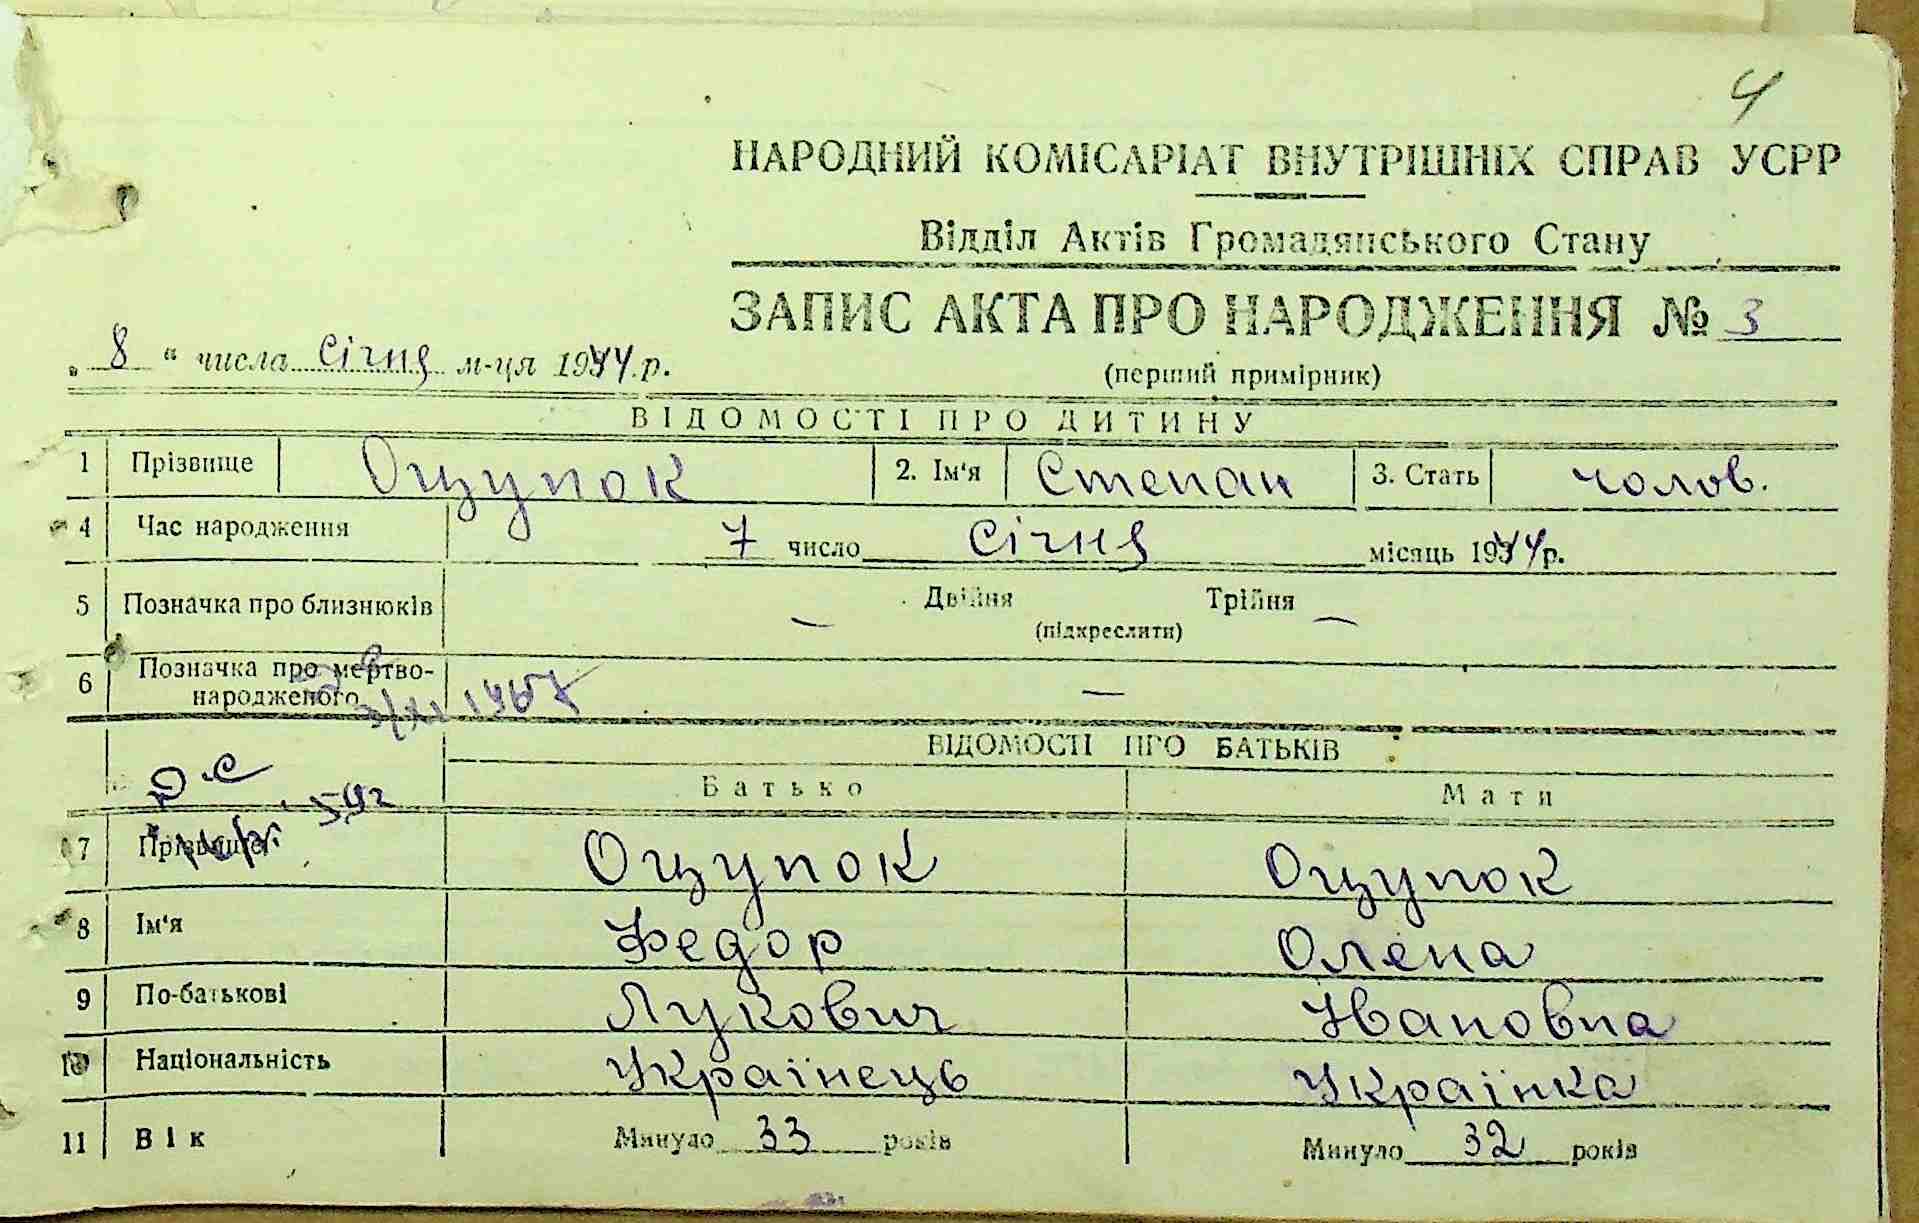 4
НАРОДНИЙ КОМІСАРІАТ ВНУТРІШНІХ СПРАВ УСРР
Відділ Актів Громадянського Стану
ЗАПИС АКТА ПРО НАРОДЖЕННЯ № 3
„ 8 “ числа січня м-ця 1944 р.
(перший примірник)
ВІДОМОСТІ ПРО ДИТИНУ
1 Прізвище Ощупок 2. Ім'я Степан 3. Стать чолов.
4 Час народження 7 число січня місяць 1944 р.
5 Позначка про близнюків — Двійня Трійня —
(підкреслити)
6 Позначка про мертво-
народженого —
ВІДОМОСТІ ПРО БАТЬКІВ
Батько Мати
7 Прізвище Ощупок Ощупок
8 Ім'я Федор Олена
9 По-батькові Лукович Івановна
10 Національність Українець Українка
11 Вік Минуло 33 років Минуло 32 років